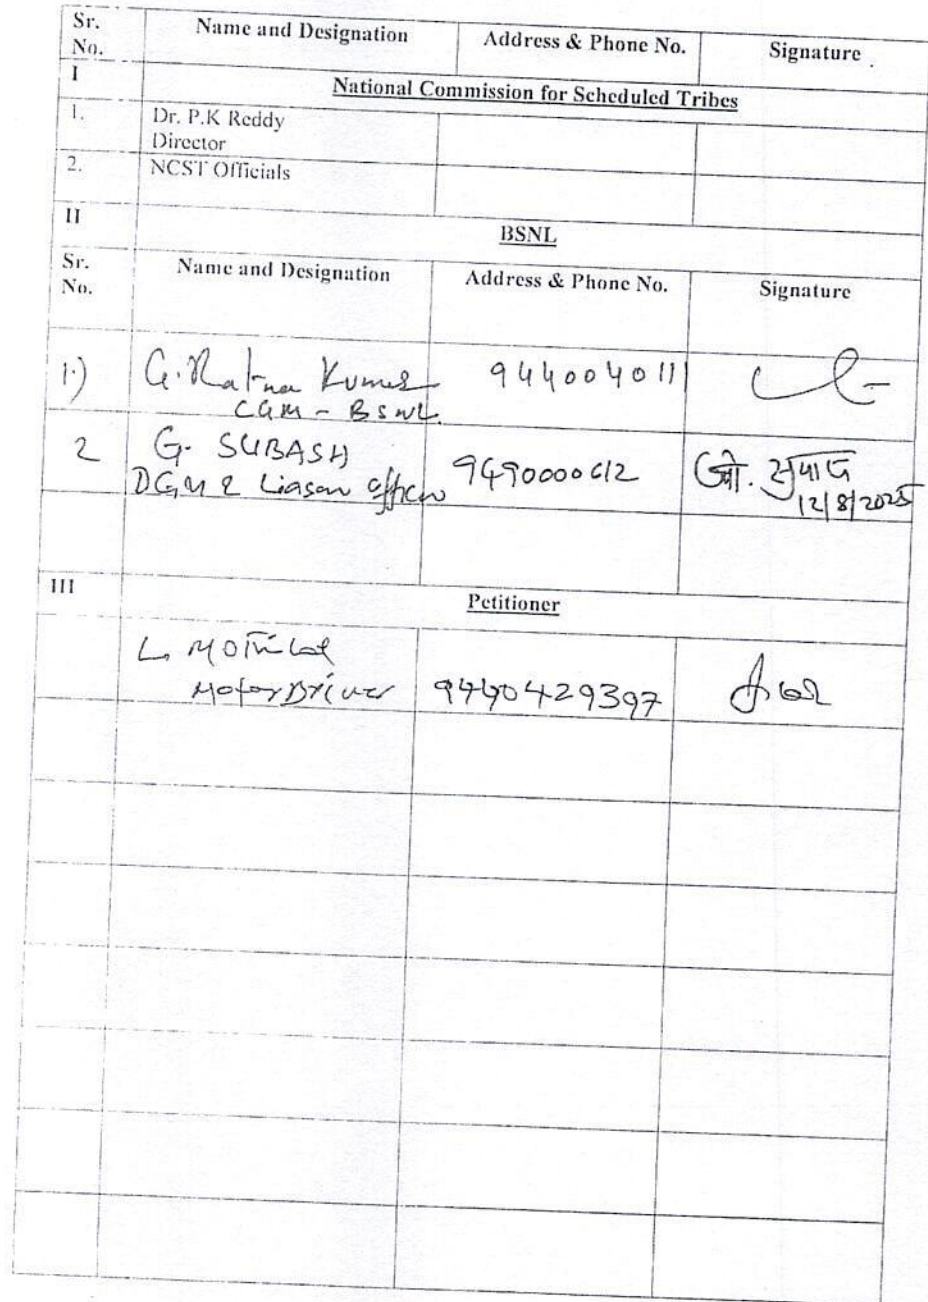 Sr. No. Name and Designation Address & Phone No. Signature
I National Commission for Scheduled Tribes
1. Dr. P.K Reddy
Director
2. NCST Officials
II BSNL
Sr. No. Name and Designation Address & Phone No. Signature
1) G. Ratna Kumar 9440040111
CGM - BSNL.
2 G. SUBASH 9490000612 जी. सुभाष
DGM & Liason officer 12/8/2025
III Petitioner
L. MOTILAL
Motor Driver 9440429397